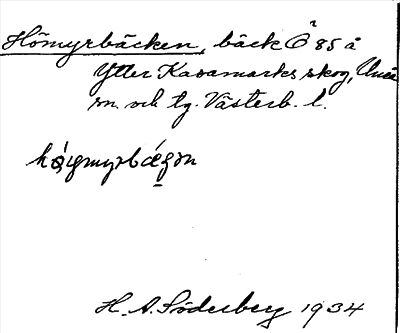 Hömyrbäcken, bäck Ö 85 å
Ytter Kasamarks skog, Umeå
sn. och tg. Västerb. l.
H. A. Söderberg 1934